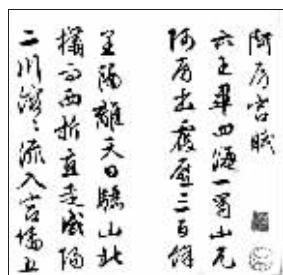 阿房宮賦
六王畢四海一蜀山兀
阿房出覆壓三百餘
里隔離天日驪山北
構而西折直走咸陽
二川溶〻流入宮墻五